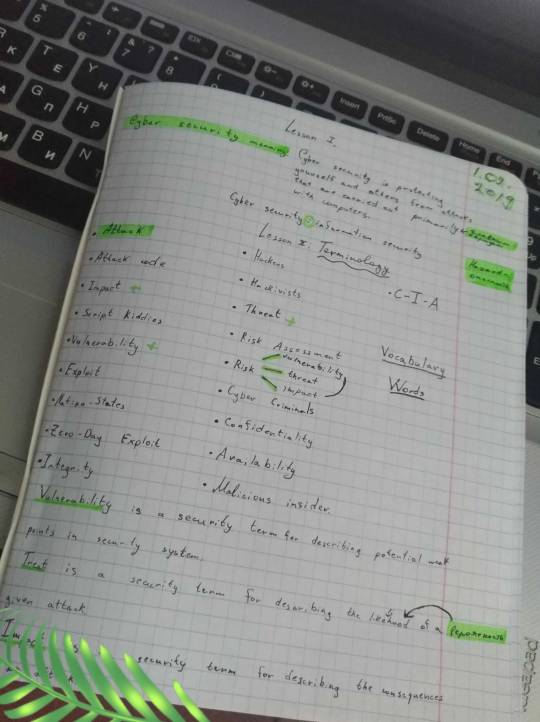 Lesson I.
1.09.
2019
Cyber security meaning
Cyber security is protecting
yourself and others from attacks
that are carried out primarily
with computers.
Cyber security information security
Lesson II: Terminology
• Attack
• Attack code
• Impact +
• Script Kiddies
• Vulnerability +
• Exploit
• Nation-States
• Zero-Day Exploit
• Integrity
• Hackers
• Hacktivists
• Threat +
• Risk Assessment
• Risk
vulnerability
threat
impact
• Cyber Criminals
• Confidentiality
• Availability
• Malicious insider.
• C-I-A
Vocabulary
Words
Vulnerability is a security term for describing potential weak
points in security system.
Treat is a security term for describing the likehood of a
given attack.
security term for describing the consequences
Insert
PrtSc
Delete
Home
End